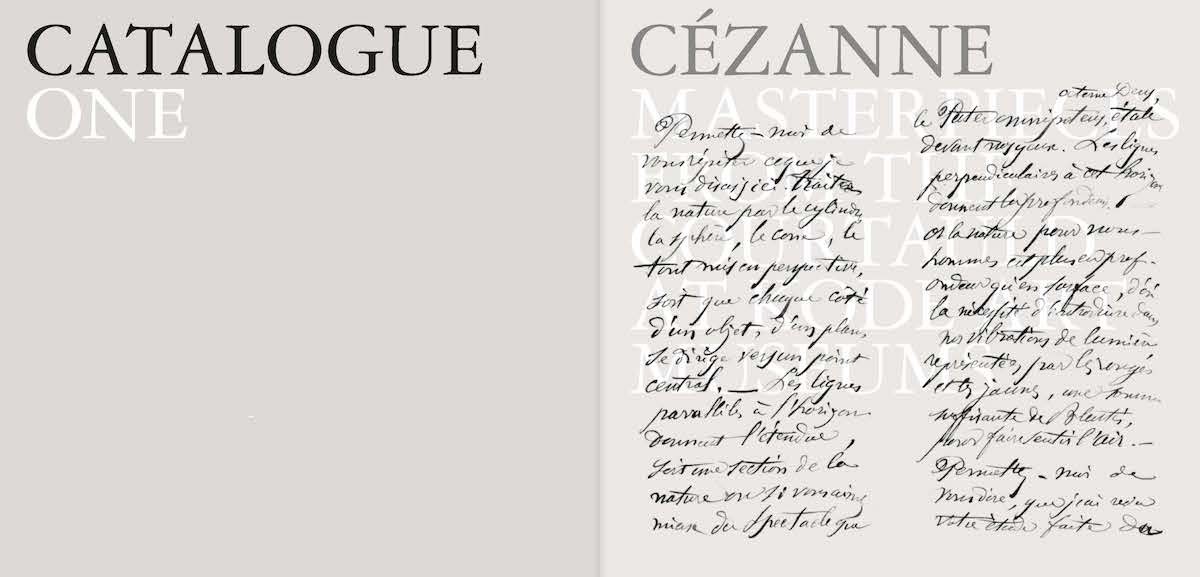 CATALOGUE
ONE
CÉZANNE
MASTERPIECES
FROM THE
COURTAULD
AT KODE ART
MUSEUMS
Permettez-moi de
vous répéter ce que je
vous disais ici: traitez
la nature par le cylindre
la sphère, le cône, le
tout mis en perspective,
soit que chaque côté
d'un objet, d'un plan,
se dirige vers un point
central. — Les lignes
parallèles à l'horizon
donnent l'étendue,
soit une section de la
nature ou si vous aimez
mieux du spectacle que
aeterne Deus,
le Pater omnipotens, étale
devant nos yeux. Les lignes
perpendiculaires à cet horizon
donnent la profondeur.
Or la nature pour nous —
hommes est plus en prof-
ondeur qu'en surface, d'où
la nécessité d'introduire dans
nos vibrations de lumière
représentées, par les rouges
et les jaunes, une somme
suffisante de bleutés,
pour faire sentir l'air. —
Permettez-moi de
vous dire, que j'ai revu
votre étude faite du